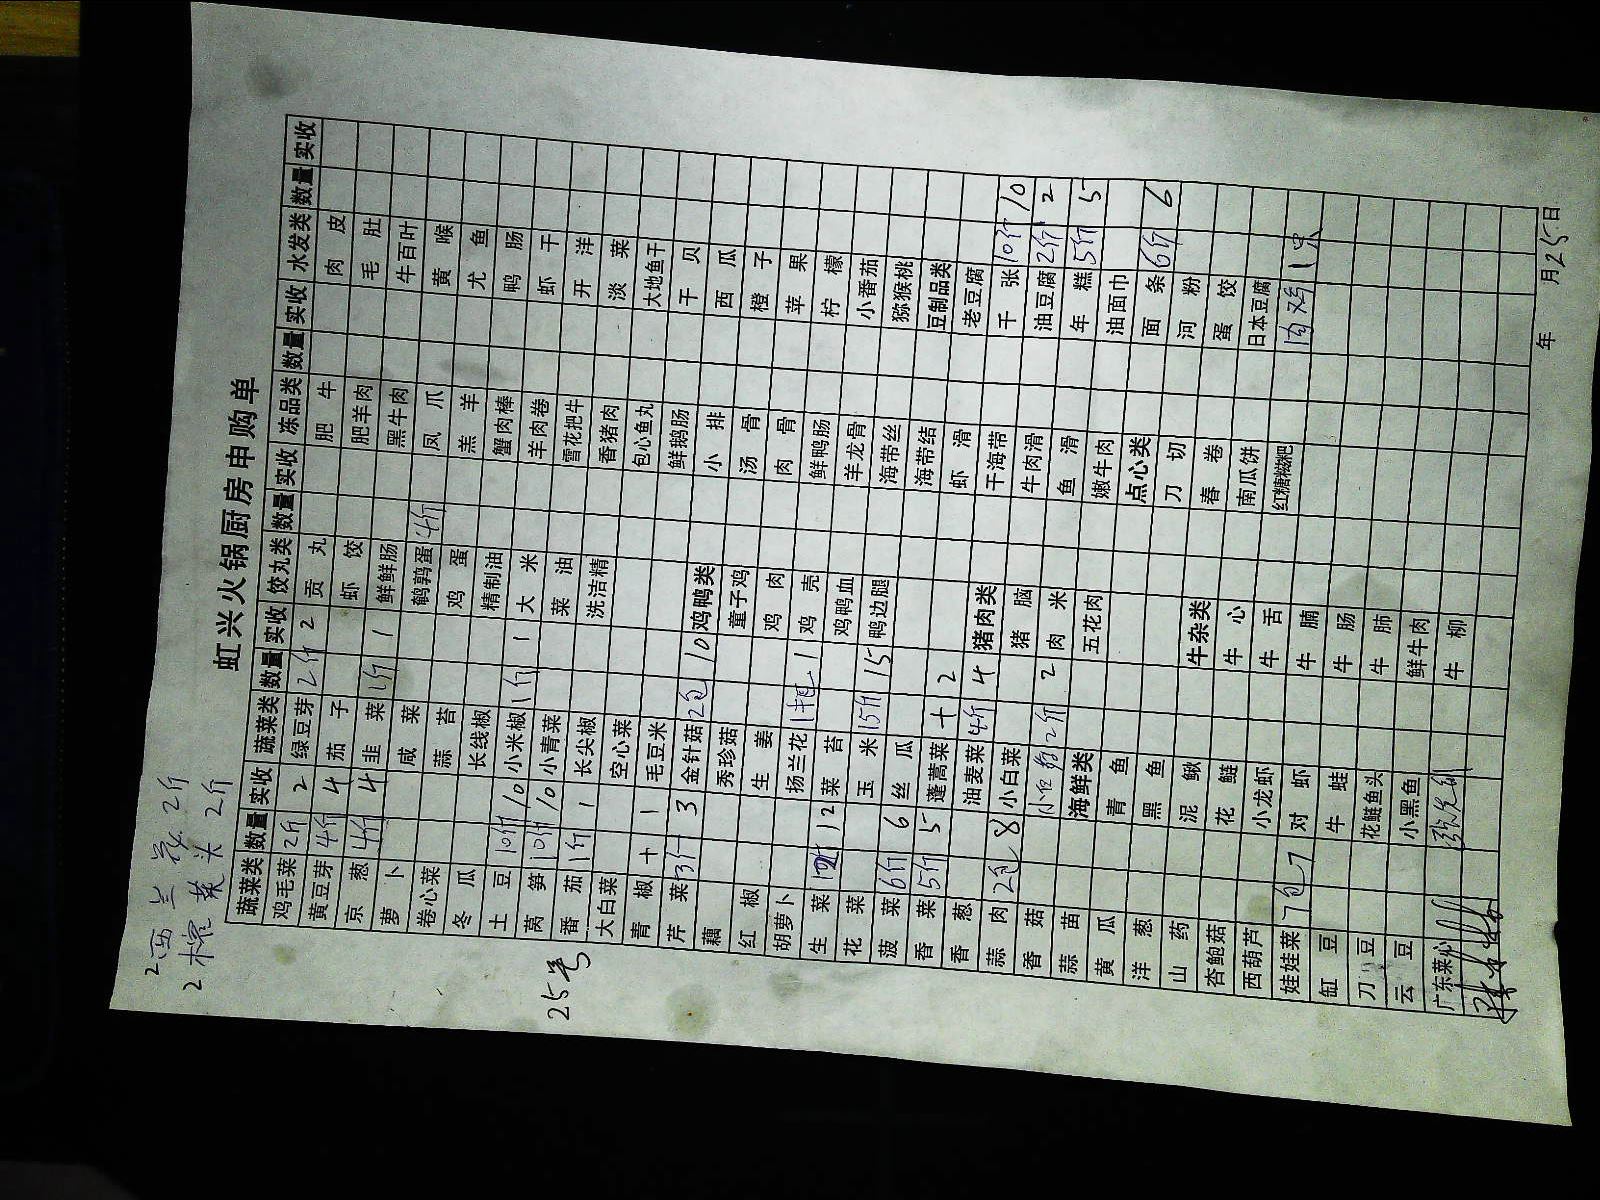 2 西兰花 2斤
2 榨菜头 2斤
虹兴火锅厨房申购单
蔬菜类 数量 实收 蔬菜类 数量 实收 饺丸类 数量 实收 冻品类 数量 实收 水发类 数量 实收
鸡毛菜 2斤 2 绿豆芽 2斤 2 贡丸 肥牛 肉皮
黄豆芽 4斤 4 茄子 虾饺 肥羊肉 毛肚
京葱 4斤 4 韭菜 1斤 1 鲜鲜肠 黑牛肉 牛百叶
萝卜 咸菜 鹌鹑蛋 4斤 凤爪 黄喉
卷心菜 蒜苔 鸡蛋 羔羊 尤鱼
冬瓜 长线椒 精制油 蟹肉棒 鸭肠
土豆 10斤 10 小米椒 1斤 1 大米 羊肉卷 虾干
莴笋 10斤 10 小青菜 菜油 雪花把牛 开洋
番茄 1斤 1 长尖椒 洗洁精 香猪肉 淡菜
大白菜 空心菜 包心鱼丸 大地鱼干
青椒 + 1 毛豆米 鲜鹅肠 干贝
芹菜 3斤 3 金针菇 2包 10 鸡鸭类 小排 西瓜
藕 秀珍菇 童子鸡 汤骨 橙子
红椒 生姜 鸡肉 肉骨 苹果
胡萝卜 扬兰花 1包 1 鸡壳 鲜鸭肠 柠檬
生菜 12 菜苔 鸡鸭血 羊龙骨 小番茄
花菜 玉米 15斤 15 鸭边腿 海带丝 猕猴桃
菠菜 6斤 6 丝瓜 海带结 豆制品类
香菜 5斤 5 蓬蒿菜 + 2 虾滑 老豆腐
香葱 油麦菜 4斤 4 猪肉类 干海带 千张 10斤 10
蒜肉 2包 8 小白菜 猪脑 牛肉滑 油豆腐 2斤 2
香菇 2斤 2 肉米 鱼滑 年糕 5斤 5
蒜苗 海鲜类 五花肉 嫩牛肉 油面巾
黄瓜 青鱼 点心类 面条 6斤 6
洋葱 黑鱼 刀切 河粉
山药 泥鳅 牛杂类 春卷 蛋饺
杏鲍菇 花鲢 牛心 南瓜饼 日本豆腐
西葫芦 小龙虾 牛舌 红糖糍粑 肉鸡 1只
娃娃菜 7包 7 对虾 牛腩
缸豆 牛蛙 牛肠
刀豆 花鲢鱼头 牛肺
云豆 小黑鱼 鲜牛肉
广东菜心 牛柳
25号
年 月25日